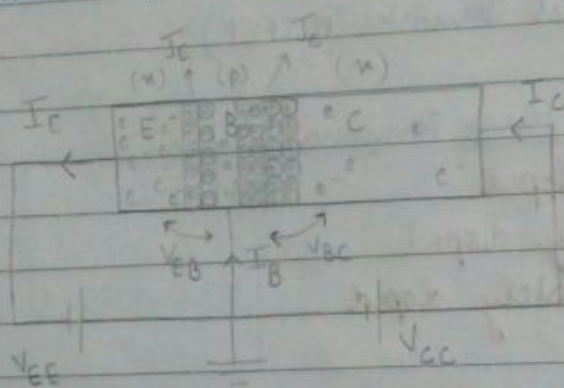 J_E J_C
(n) (p) (n)
I_C I_C
E B C
e⁻ e⁻
V_EB I_B V_BC
V_EE V_CC